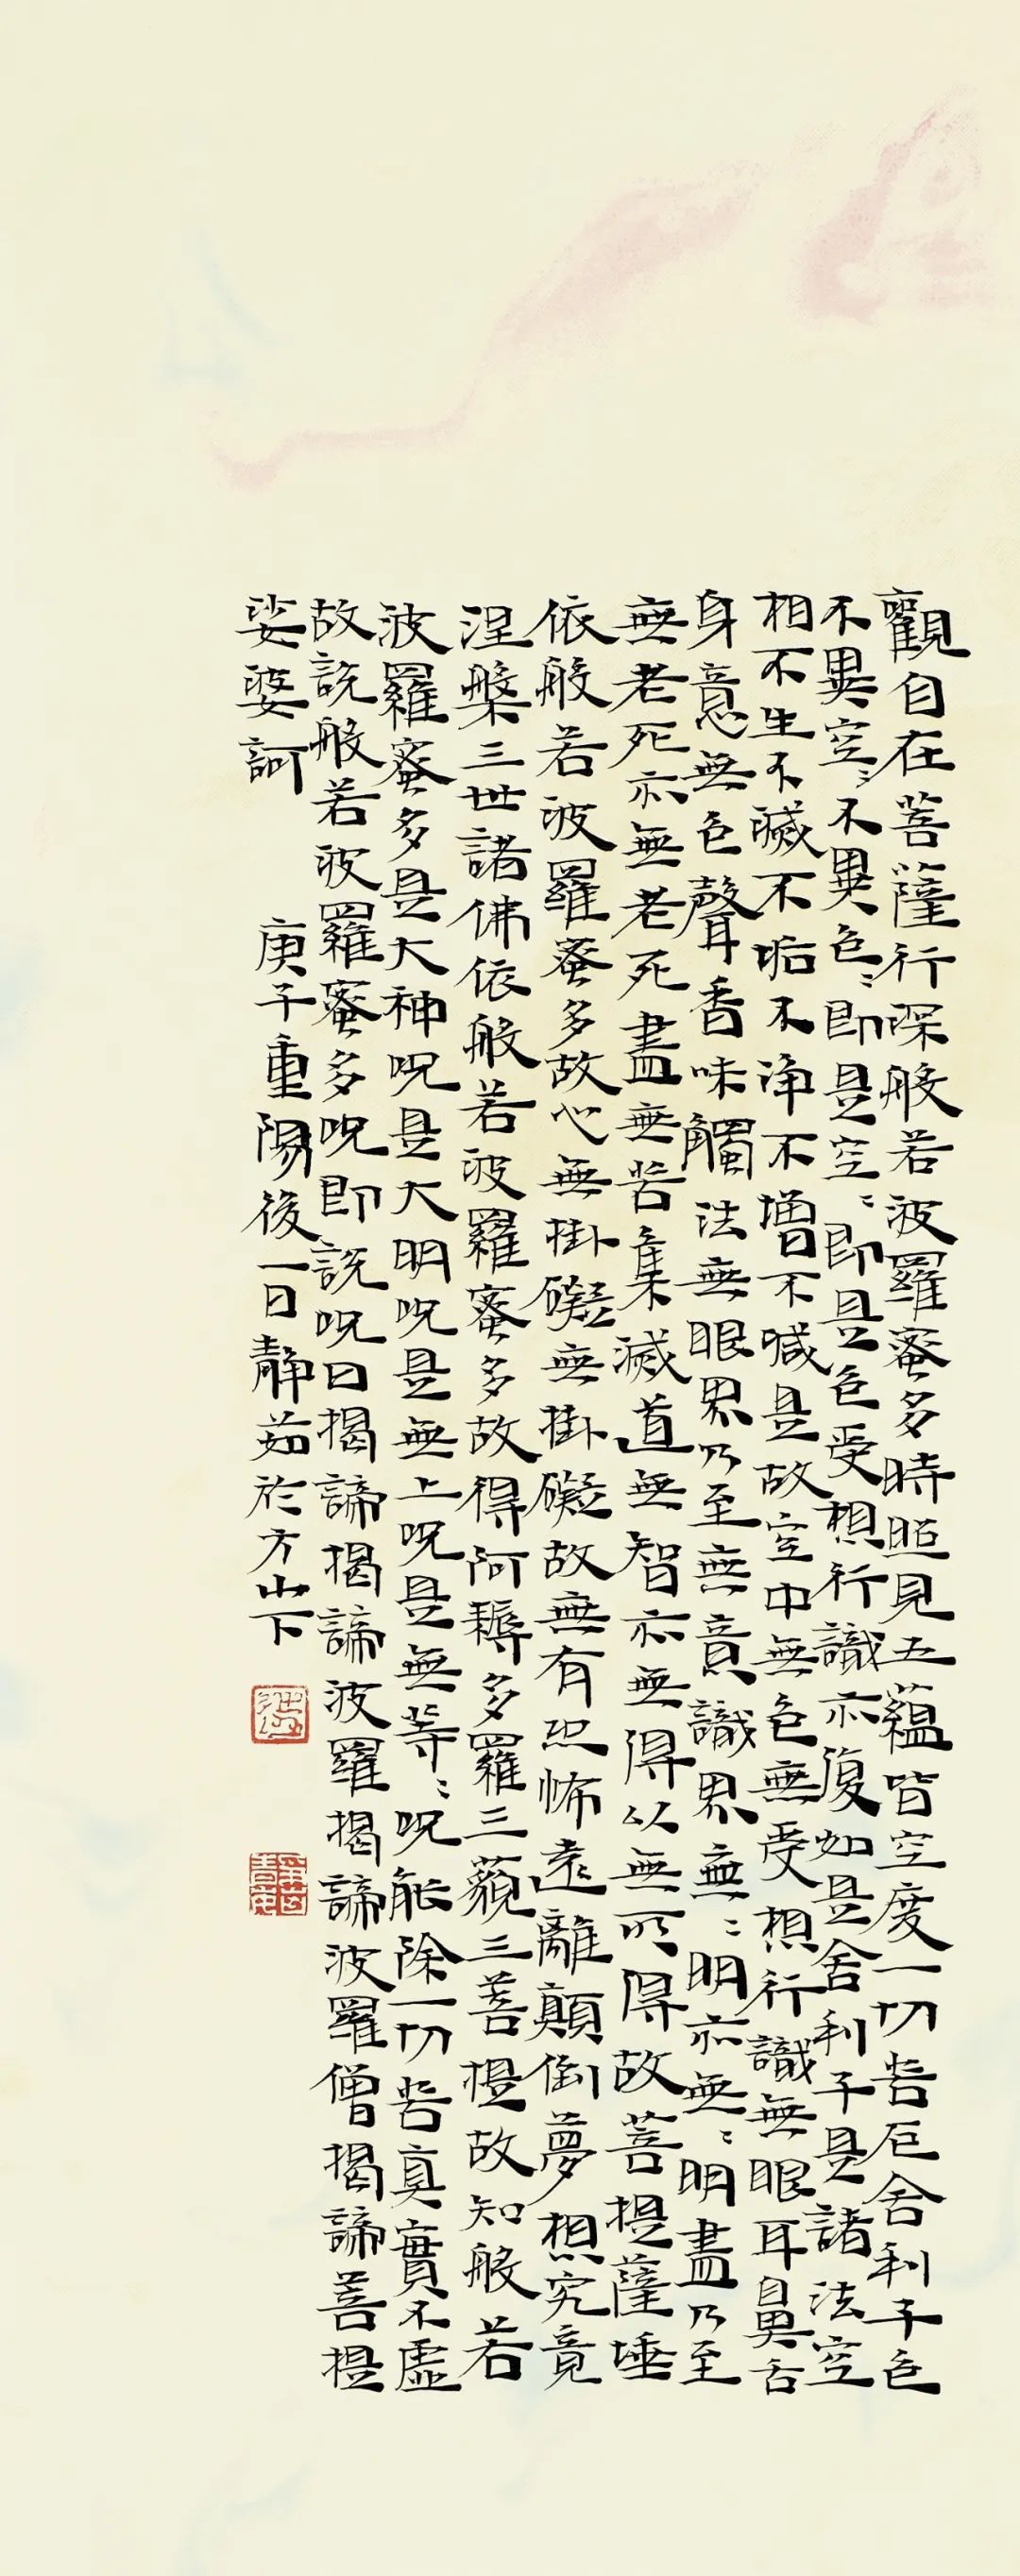 觀自在菩薩行深般若波羅蜜多時照見五蘊皆空度一切苦厄舍利子色
不異空〻不異色〻即是空〻即是色受想行識亦復如是舍利子是諸法空
相不生不滅不垢不淨不增不減是故空中無色無受想行識無眼耳鼻舌
身意無色聲香味觸法無眼界乃至無意識界無〻明亦無〻明盡乃至
無老死亦無老死盡無苦集滅道無智亦無得以無所得故菩提薩埵
依般若波羅蜜多故心無掛礙無掛礙故無有恐怖遠離顛倒夢想究竟
涅槃三世諸佛依般若波羅蜜多故得阿耨多羅三藐三菩提故知般若
波羅蜜多是大神呪是大明呪是無上呪是無等〻呪能除一切苦真實不虛
故說般若波羅蜜多呪即說呪曰揭諦揭諦波羅揭諦波羅僧揭諦菩提
娑婆訶
庚子重陽後一日靜茹於方山下